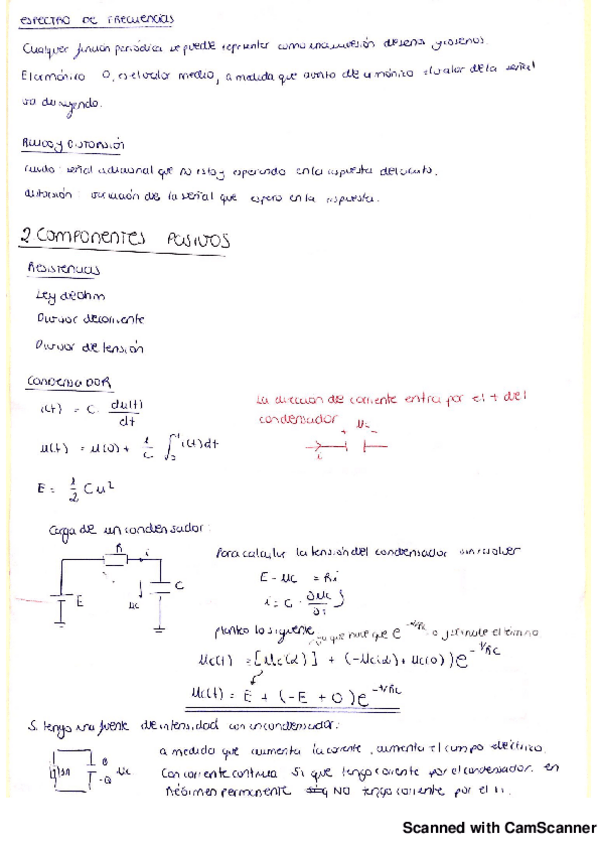 ESPECTRO DE FRECUENCIAS
Cualquier función periódica se puede representar como una inversión de senos y cosenos.
El armónico 0, es el valor medio, a medida que aumento de armónico el valor de la señal
va disminuyendo.
RUIDO y DISTORSIÓN
ruido: señal adicional que no estoy esperando en la respuesta del circuito.
distorsión: variación de la señal que espero en la respuesta.
2 COMPONENTES PASIVOS
RESISTENCIAS
Ley de Ohm
Divisor de corriente
Divisor de tensión
CONDENSADOR
i(t) = C · du(t)/dt
La dirección de corriente entra por el + del
condensador
+ Uc -
i
u(t) = u(0) + 1/C ∫ i(t)dt
E = 1/2 Cu²
Carga de un condensador:
R i
E Uc C
Para calcular la tensión del condensador sin resolver
E - Uc = Ri
i = C ·
planteo lo siguiente ya que hace que e
Uc(t) = [Uc(∞)] + (-Uc(∞) + Uc(0)) e^-t/RC
Uc(t) = E + (-E + 0) e^-t/RC
Si tengo una fuente de intensidad con un condensador:
Q
-Q Uc
a medida que aumenta la corriente, aumenta el campo eléctrico.
Con corriente continua si que tengo corriente por el condensador. en
Régimen permanente NO tengo corriente por el
Scanned with CamScanner